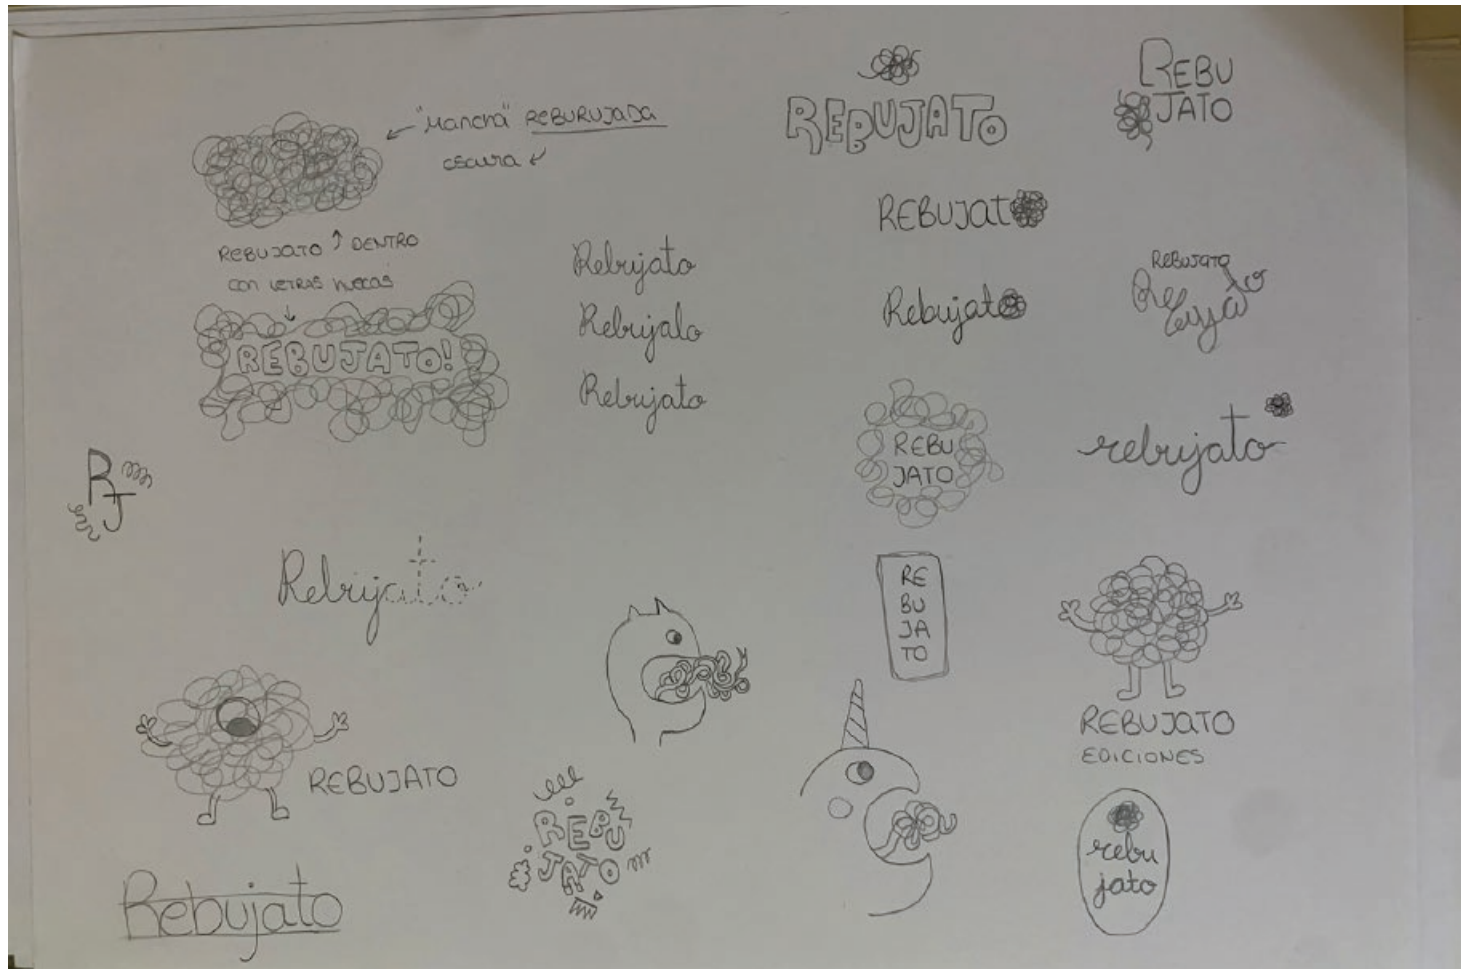 "Mancha" REBURUJADA
oscura
REBUJATO DENTRO
CON LETRAS HUECAS
REBUJATO!
Rebujato
Rebujato
Rebujato
REBUJATO
REBU
JATO
REBUJATO
Rebujato
REBUJATO
REBU
JATO
rebujato
RJ
Rebujato
RE
BU
JA
TO
REBUJATO
REBUJATO
EDICIONES
REBU
JATO
Rebujato
rebu
jato